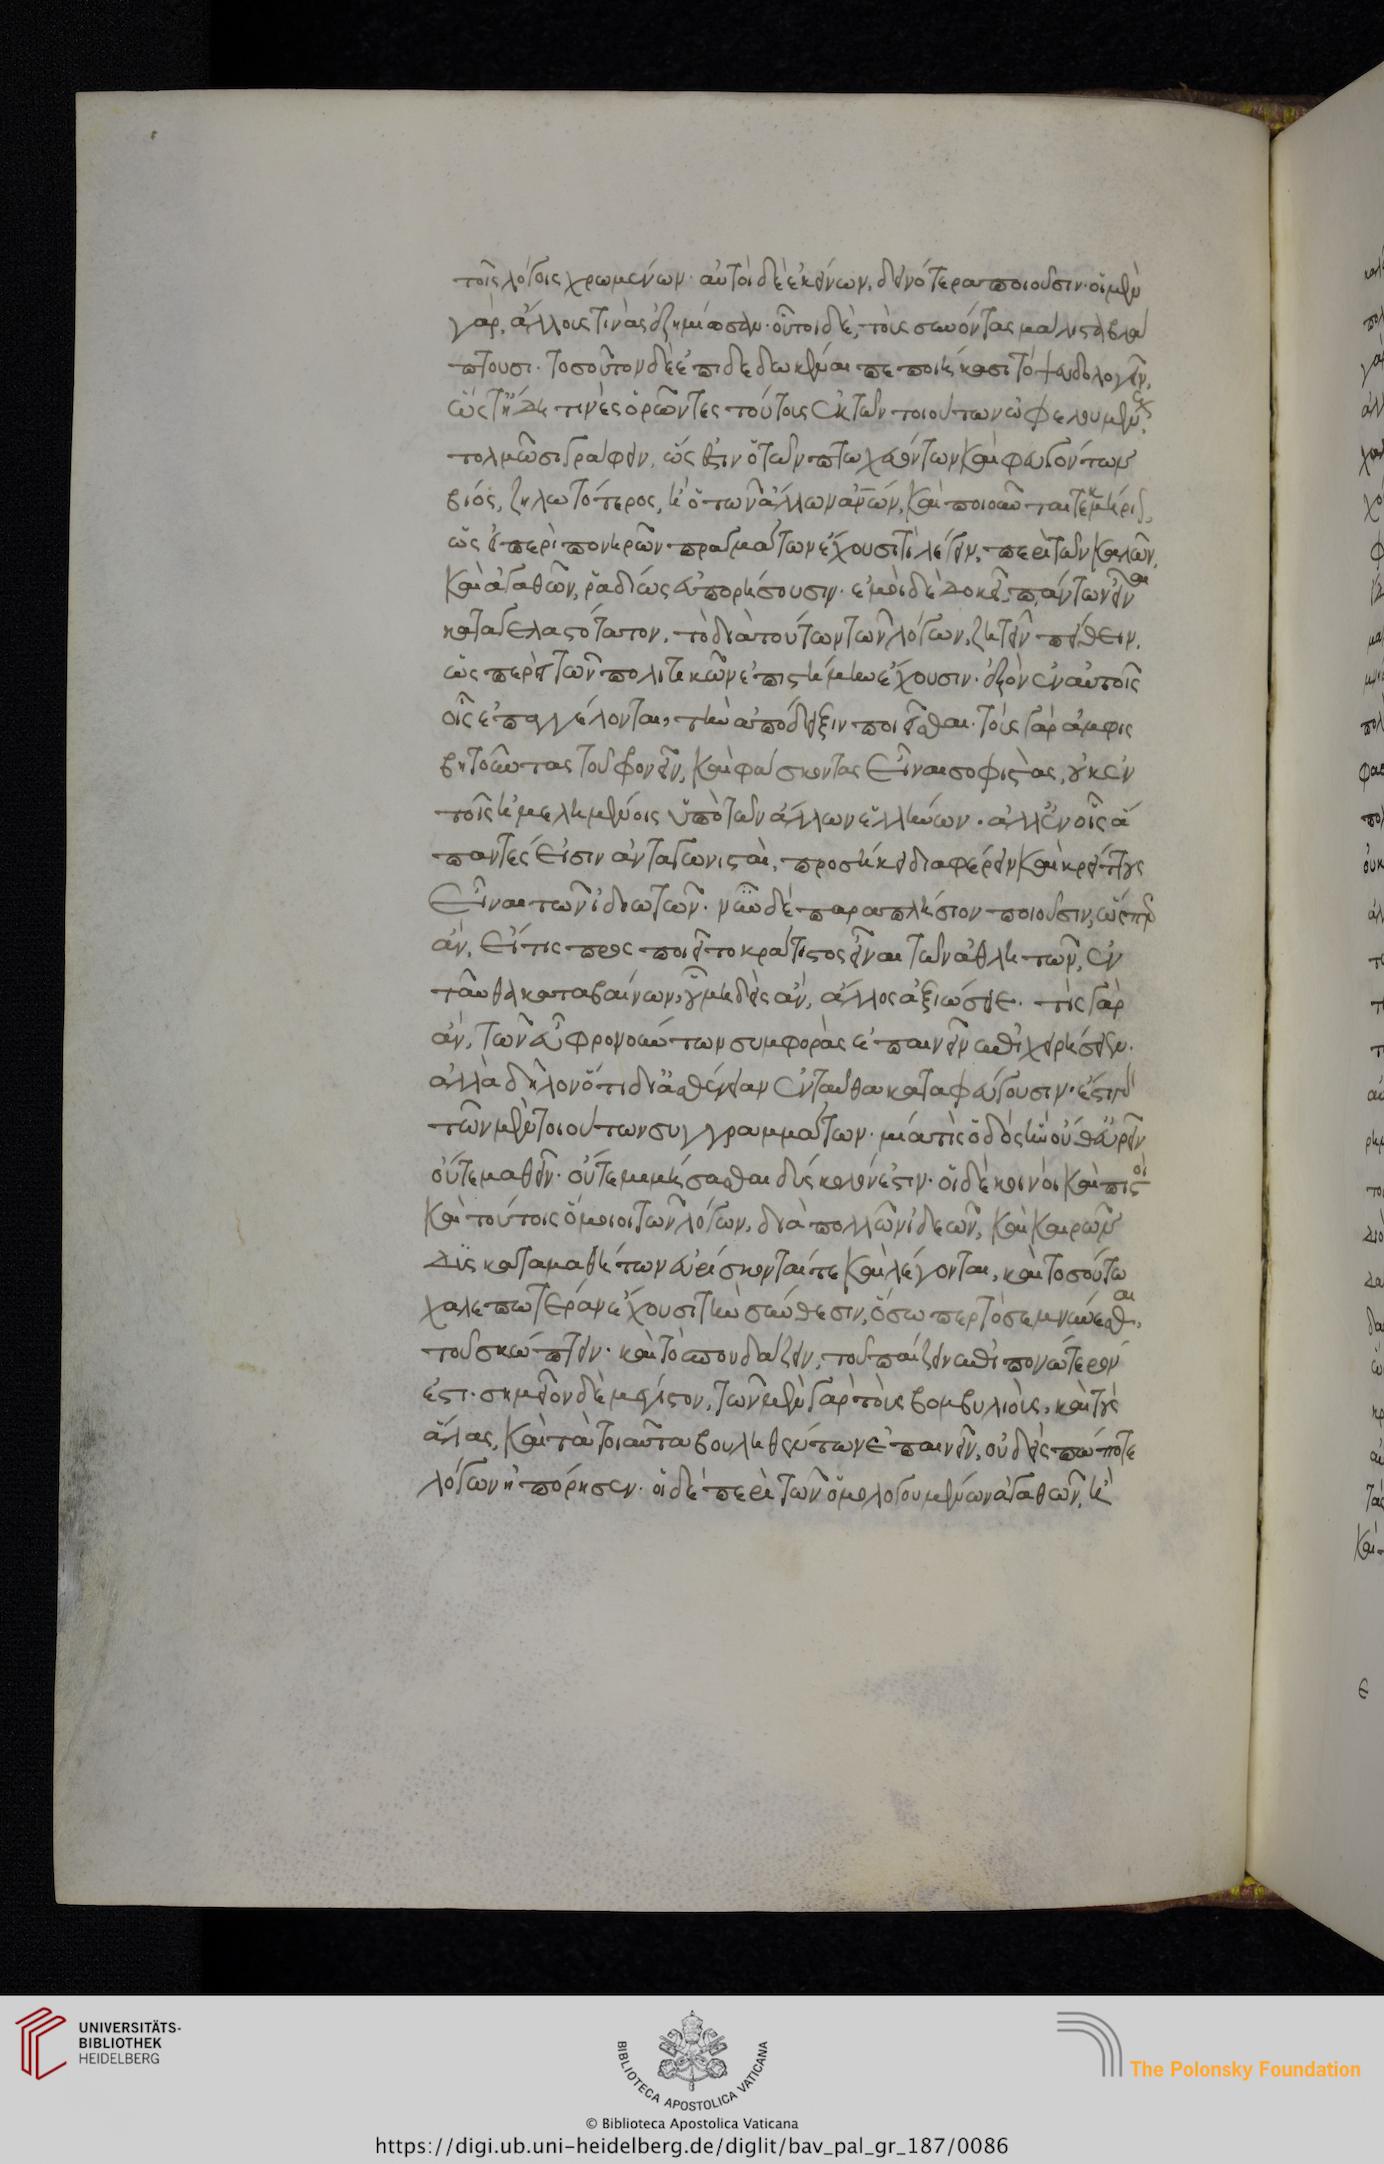 τοῖς λόγοις χρωμένων· αὐτοὶ δὲ ἐκείνων, δεινότερα ποιοῦσιν· οἱ μὲν
γὰρ, ἄλλους τινὰς ἐζημίωσαν· οὗτοι δὲ, τοὺς συνόντας μάλιστα βλά
πτουσι. τοσοῦτον δὲ ἐπιδεδωκέναι πεποιήκασι τὸ ψευδολογεῖν,
ὥς τ' ἤδη τινὲς ὁρῶντες τούτους ἐκ τῶν τοιούτων ὠφελουμένους,
τολμῶσι γράφειν, ὥς ἐστιν ὁ τῶν πτωχευόντων καὶ φευγόντων
βίος, ζηλωτότερος, ἢ ὁ τῶν ἄλλων ἀνων, καὶ ποιοῦνται τεκμήριον,
ὡς εἰ περὶ πονηρῶν πραγμάτων ἔχουσί τι λέγειν, περὶ τῶν καλῶν,
καὶ ἀγαθῶν, ῥαδίως εὐπορήσουσιν. ἐμοὶ δὲ δοκεῖ, πάντων εἶναι
καταγελαστότατον, τὸ διὰ τούτων τῶν λόγων, ζητεῖν πείθειν,
ὡς περὶ τῶν πολιτικῶν ἐπιστήμην ἔχουσιν. ἐξὸν ἐν αὐτοῖς
οἷς ἐπαγγέλονται, τὴν ἀπόδειξιν ποιεῖσθαι. τοὺς γὰρ ἀμφις
βητοῦντας τοῦ φρονεῖν, καὶ φάσκοντας εἶναι σοφιστὰς, οὐκ ἐν
τοῖς ἠμελημένοις ὑπὸ τῶν ἄλλων ἑλλήνων. ἀλλ' ἐν οἷς ἅ
παντές εἰσιν ἀνταγωνισταὶ, προσήκει διαφέρειν καὶ κρείττους
εἶναι τῶν ἰδιωτῶν. νῦν δὲ παραπλήσιον ποιοῦσιν, ὥσπερ
ἂν, εἴ τις προσποιεῖτο κράτιστος εἶναι τῶν ἀθλητῶν, ἐν
ταῦθα καταβαίνων, οὗ μηδεὶς ἂν, ἄλλος ἀξιώσειε. τίς γὰρ
ἂν, τῶν εὖ φρονούντων συμφορὰς ἐπαινεῖν ἐπιχειρήσειεν.
ἀλλὰ δῆλον ὅτι δι' ἀσθένειαν ἐνταῦθα καταφεύγουσιν. ἔστι γὰρ
τῶν μὲν τοιούτων συγγραμμάτων. μία τις ὁδὸς ἣν οὔθ' εὑρεῖν
οὔτε μαθεῖν. οὔτε μιμήσασθαι δύσκολόν ἐστιν. οἱ δὲ κοινοὶ καὶ πιστοὶ
καὶ τούτοις ὅμοιοι τῶν λόγων, διὰ πολλῶν ἰδεῶν, καὶ καιρῶν
δυσκαταμαθήτων εὑρίσκονταί τε καὶ λέγονται, καὶ τοσούτω
χαλεπωτέραν ἔχουσι τὴν σύνθεσιν, ὅσω περ τὸ σεμνύνεσθαι,
τοῦ σκώπτειν. καὶ τὸ σπουδάζειν, τοῦ παίζειν ἐπιπονώτερόν
ἐστι. σημεῖον δὲ μέγιστον, τῶν μὲν γὰρ τοὺς βομβυλιοὺς, καὶ τοὺς
ἅλας, καὶ τὰ τοιαῦτα βουληθέντων ἐπαινεῖν, οὐδεὶς πώποτε
λόγων ἠπόρησεν. οἱ δὲ περὶ τῶν ὁμολογουμένων ἀγαθῶν, ἢ
UNIVERSITÄTS-
BIBLIOTHEK
HEIDELBERG
BIBLIOTECA APOSTOLICA VATICANA
The Polonsky Foundation
© Biblioteca Apostolica Vaticana
https://digi.ub.uni-heidelberg.de/diglit/bav_pal_gr_187/0086